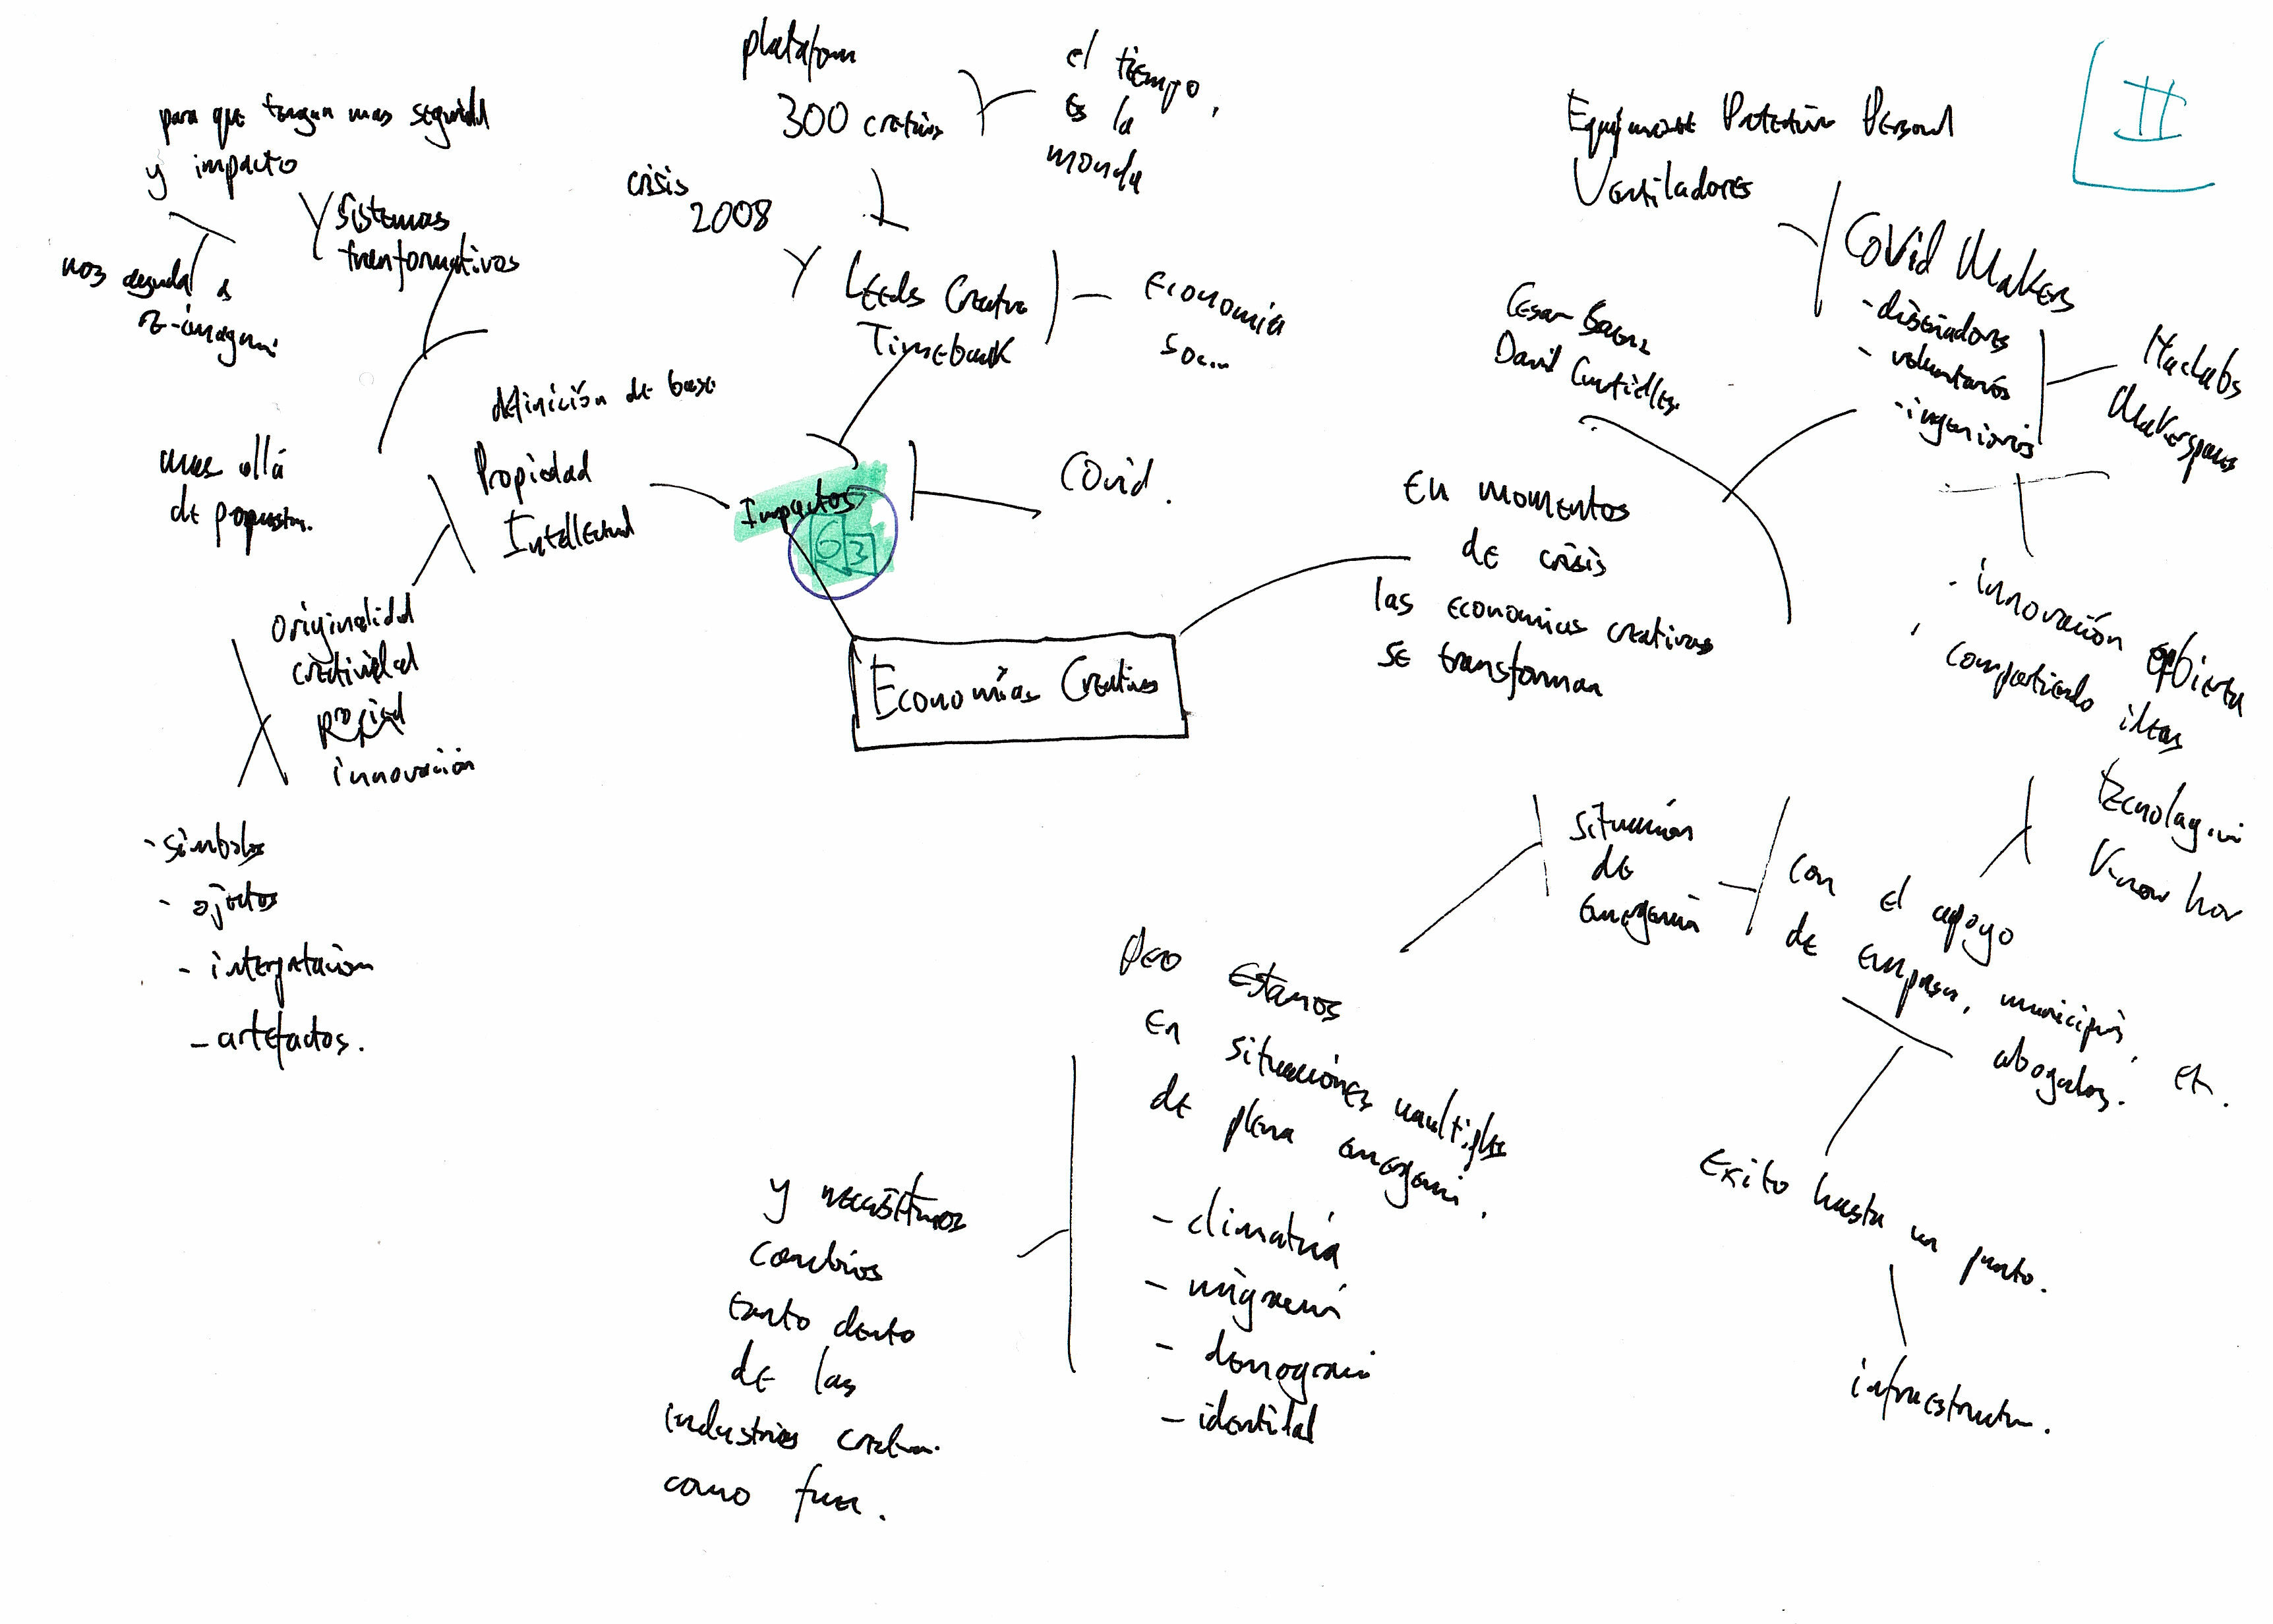 II
plataform
300 creativos
el tiempo,
es la
moneda
crisis
2008
Leeds Creative
Timebank
Economía
Soc...
para que tengan mas seguridad
y impacto
Sistemas
tranformativos
nos ayuda a
re-imaginar
mas allá
de propuestas.
definición de base
Propiedad
Intellectual
Originalidad
creatividad
innovación
- simbolos
- ojetos
- interpretacion
- artefactos.
Impactos
63
Covid.
Economías Creativas
En momentos
de crisis
las economias creativas
se transforman
Cesar
David Cuartielles.
Equipment Protection Personal
Ventiladores
Covid Makers
- diseñadores
- voluntarios
- ingenieros
Hacklabs
Makerspaces
- innovación abierta
compartiendo ideas
tecnologia
Know how
con el apoyo
de empresas, municipios, etc.
abogados.
Exito hasta un punto.
infraestructura.
Situación
de
emergencia
Pero Estamos
En situaciónes multiples
de plena emergencia.
- climatica
- migración
- demografia
- identidad
y necesitamos
cambios
tanto dentro
de las
industrias creativas
como fuera.